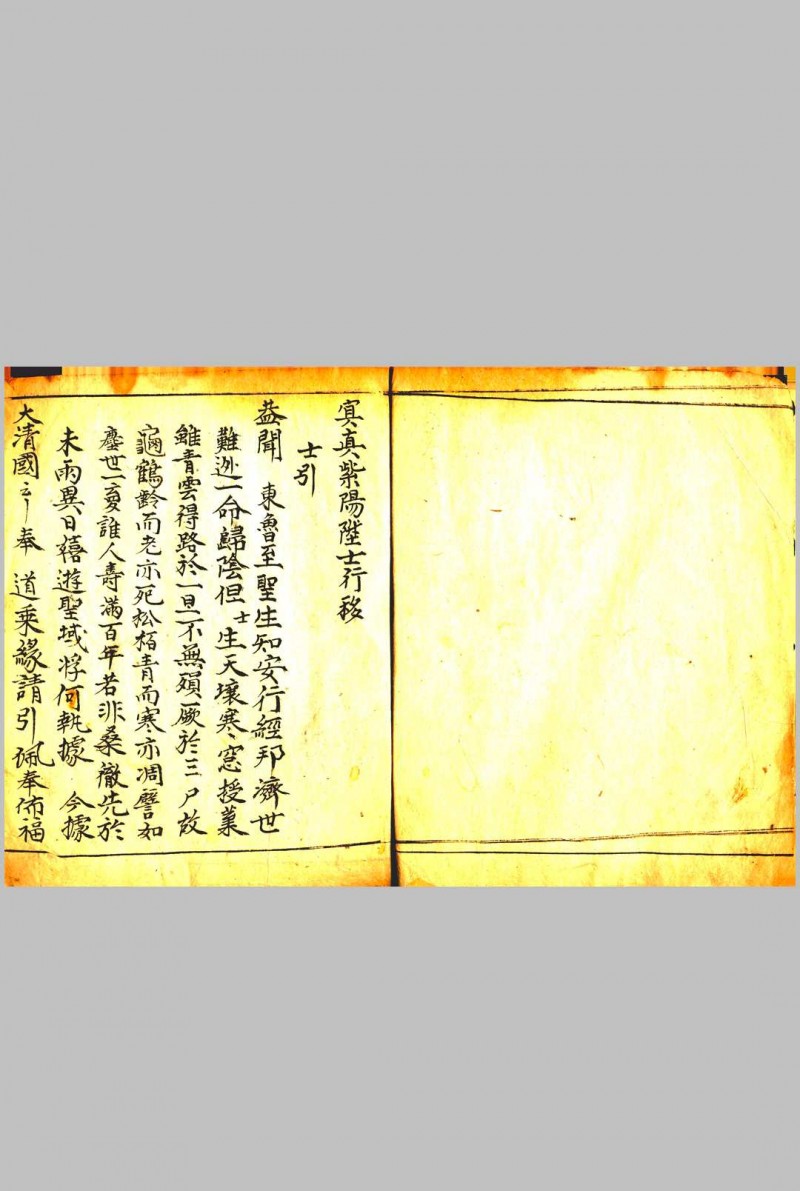 冥真紫陽陞士行移
士引
蓋聞　東魯至聖生知安行經邦濟世
難逃一命歸陰但士生天壤寒窓授業
雖青雲得路於一旦不無殞厥於三尸故
龜鶴齡而老亦死松栢青而寒亦凋譬如
塵世一夢誰人壽滿百年若非桑徹先於
未雨異日禧遊聖域将何執據　今據
大清國云奉　道乘緣請引佩奉佈福